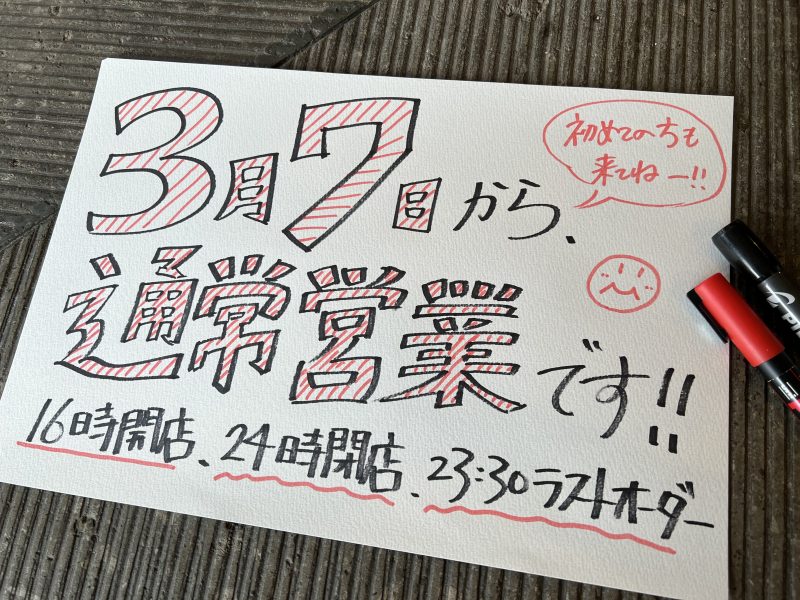 3月7日から、
初めての方も
来てねー!!
通常営業です!!
16時開店、24時閉店、23:30ラストオーダー